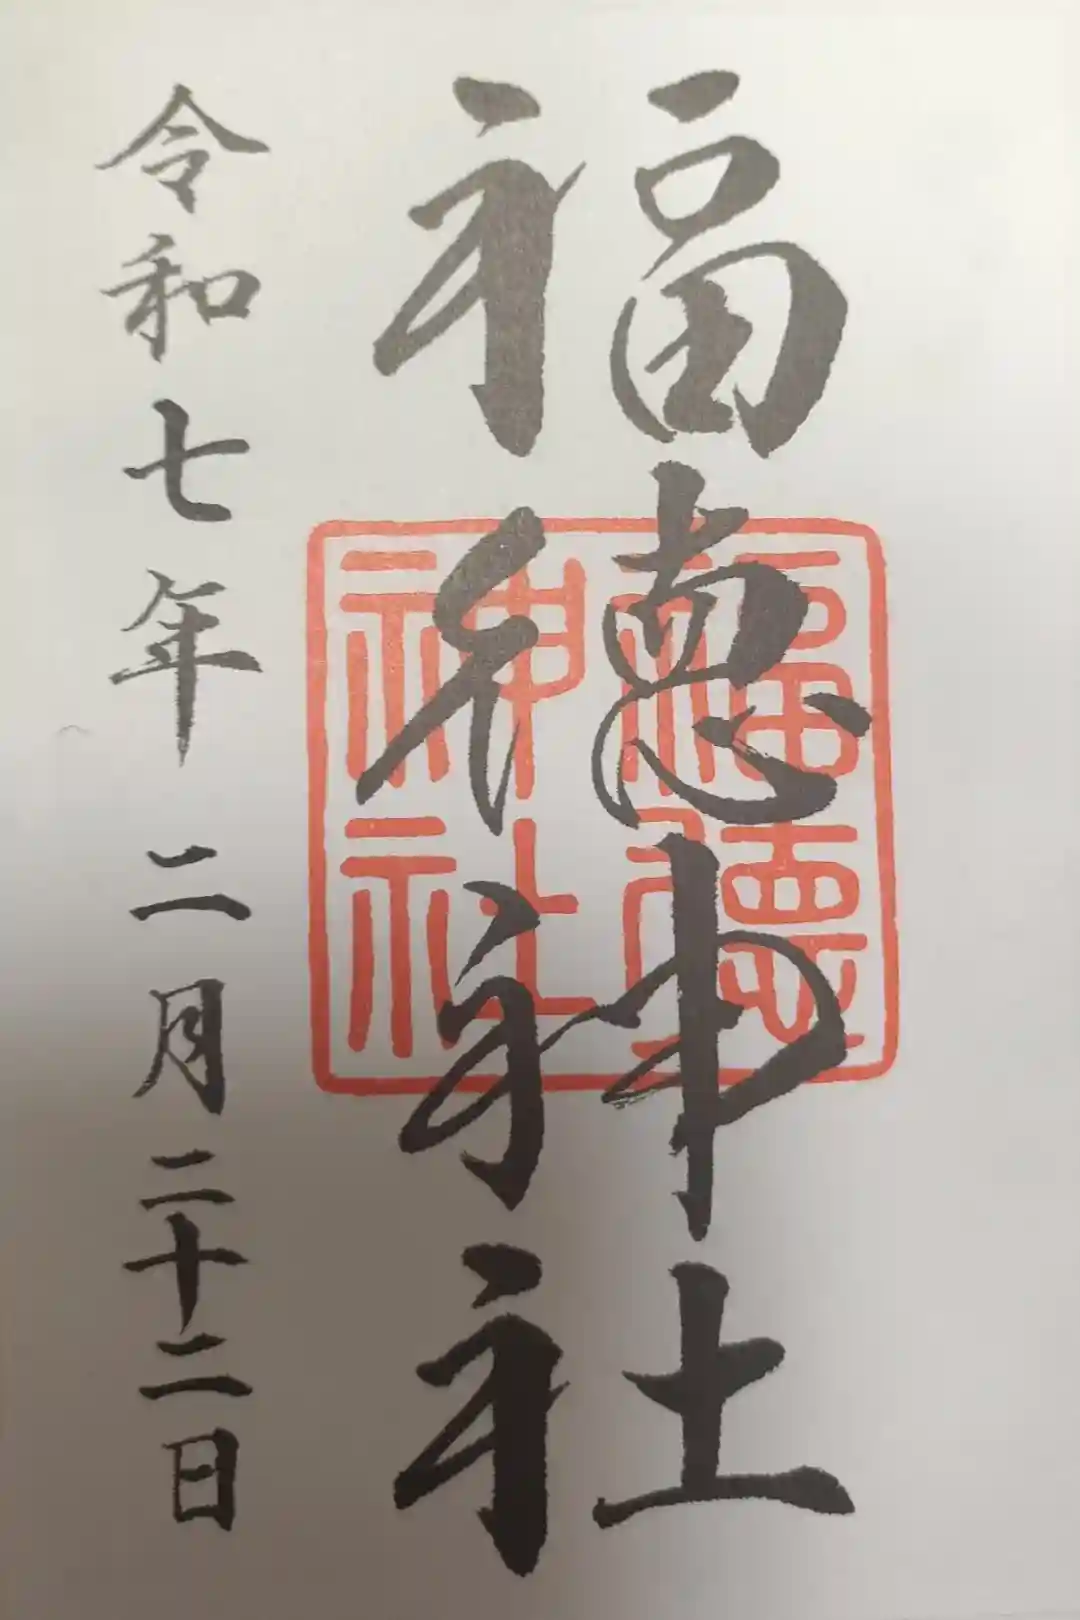 福徳神社
福徳神社
令和七年二月二十二日